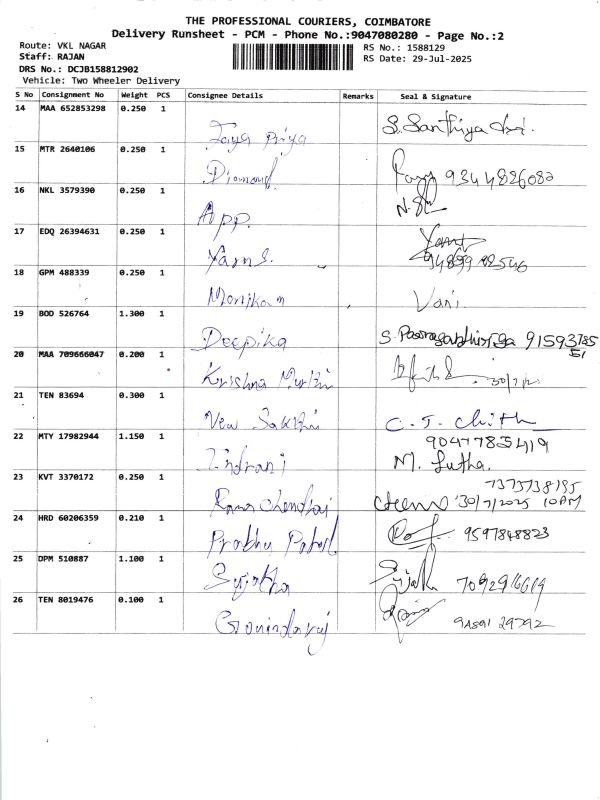 THE PROFESSIONAL COURIERS, COIMBATORE
Delivery Runsheet - PCM - Phone No.:9047080280 - Page No.:2
Route: VKL NAGAR RS No.: 1588129
Staff: RAJAN RS Date: 29-Jul-2025
DRS No.: DCJB158812902
Vehicle: Two Wheeler Delivery
S No Consignment No Weight PCS Consignee Details Remarks Seal & Signature
14 MAA 652853298 0.250 1
Jaya Priya S. Santhiya
15 MTR 2640106 0.250 1
Diamond 9344826082
16 NKL 3579390 0.250 1
App.
17 EDQ 26394631 0.250 1
Yarn S.
18 GPM 488339 0.250 1
Monika m Vani
19 BOD 526764 1.300 1
Deepika S. 91593785
51
20 MAA 709666047 0.200 1
Krishna 30/7/2
21 TEN 83694 0.300 1
Sakthi C. J. Chith
22 MTY 17982944 1.150 1 9047783419
Indrani M. Sutha.
23 KVT 3370172 0.250 1 7373738195
30/7/2025 10PM
24 HRD 60206359 0.210 1
Prabhu Patel 9597848823
25 DPM 510887 1.100 1
Sujatha Sujatha
26 TEN 8019476 0.100 1
Govindaraj